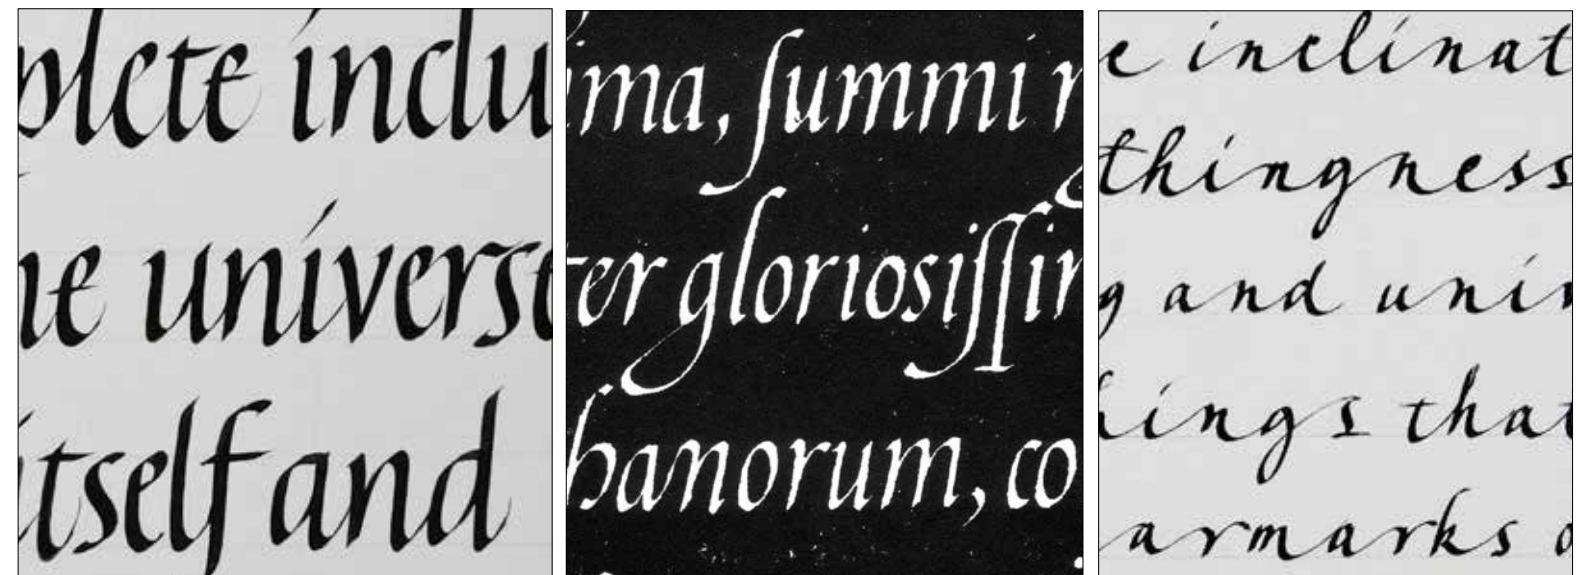 plete inclu
ne universe
itself and
ima, ſummi r
ter glorioſiſſim
banorum, co
e inclinat
thingness
g and univ
hings that
armarks o